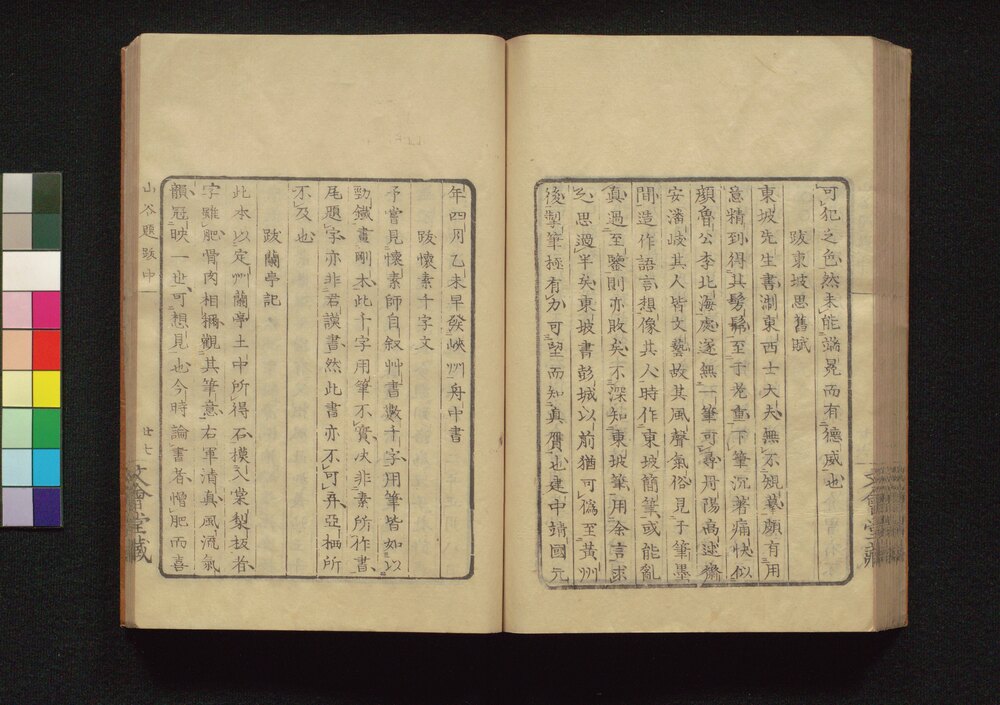 可犯之色然未能端冕而有德威也
跋東坡思舊賦
東坡先生書淛東西士大夫無不規摹頗有用
意精到得其髣髴至于老重下筆沉著痛快似
顔魯公李北海處遂無一筆可尋丹陽高述齊
安潘岐其人皆文藝故其風聲氣俗見于筆墨
間造作語言想像其人時作東坡簡筆或能亂
真過至鑒則亦敗矣不深知東坡筆用余言求
之思過半矣東坡書彭城以前猶可偽至黃州
後掣筆極有力可望而知真贋也建中靖國元
文會堂藏
年四月乙未早發峽州舟中書
跋懷素千字文
予嘗見懷素師自叙艸書數千字用筆皆如以
勁鐵畫剛木此千字用筆不實決非素所作書
尾題字亦非君謨書然此書亦不可弃亞栖所
不及也
跋蘭亭記
此本以定州蘭亭土中所得石摸入棠梨板者
字雖肥骨肉相稱觀其筆意右軍清真風流氣
韻冠映一世可想見也今時論書者憎肥而喜
山谷題跋中 廿七
文會堂藏